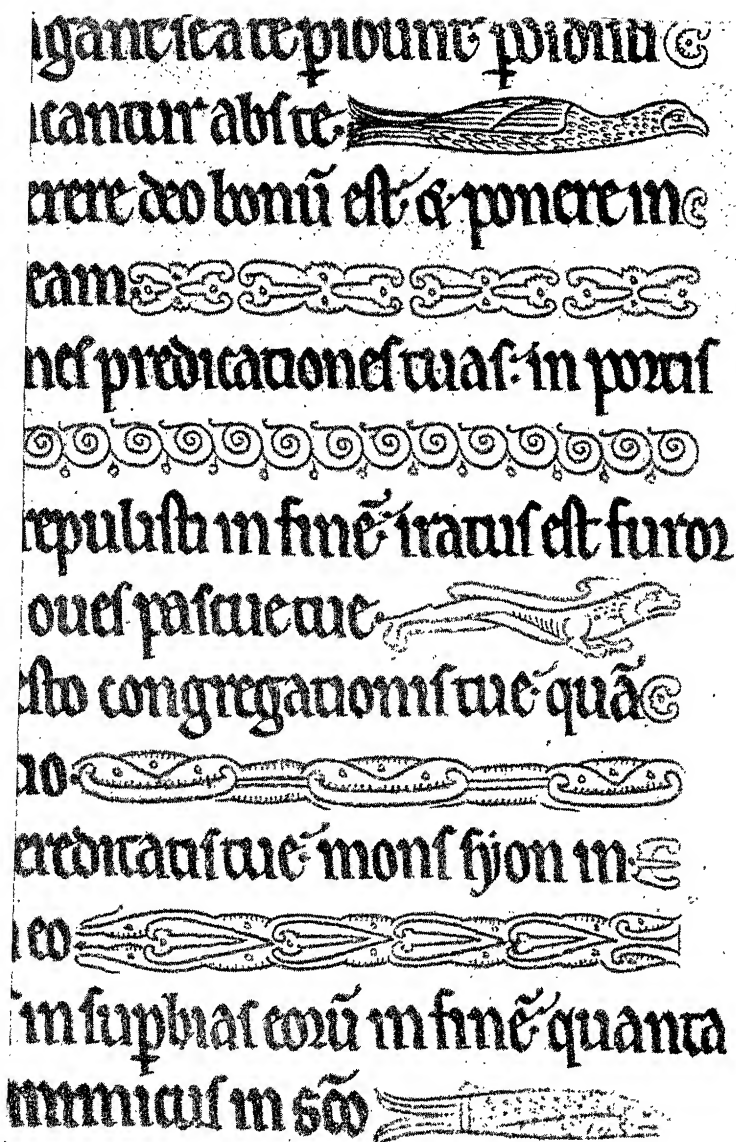 gant se a te ꝑibunt: ꝑdidisti
cantur abs te.
erere deo bonū est: & ponere in
eam.
nes predicationes tuas: in portis
repulisti in finē: iratus est furor
oues pascue tue.
esto congregationis tue: quā
io.
ereditatis tue: mons syon in
eo
in suꝑbias eorū in finē: quanta
inimicus in scō